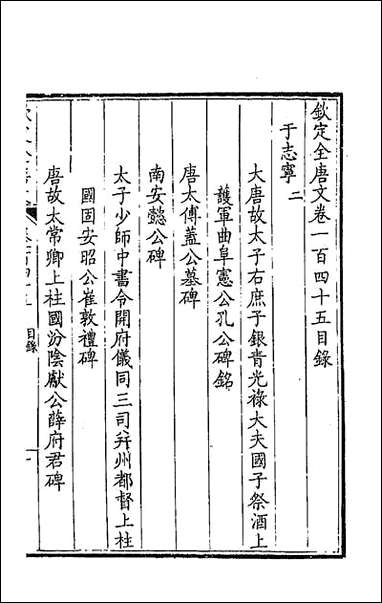 欽定全唐文卷一百四十五目錄
于志寧二
大唐故太子右庶子銀青光祿大夫國子祭酒上
護軍曲阜憲公孔公碑銘
唐太傅蓋公墓碑
南安懿公碑
太子少師中書令開府儀同三司幷州都督上柱
國固安昭公崔敦禮碑
唐故太常卿上柱國汾陰獻公薛府君碑
目錄